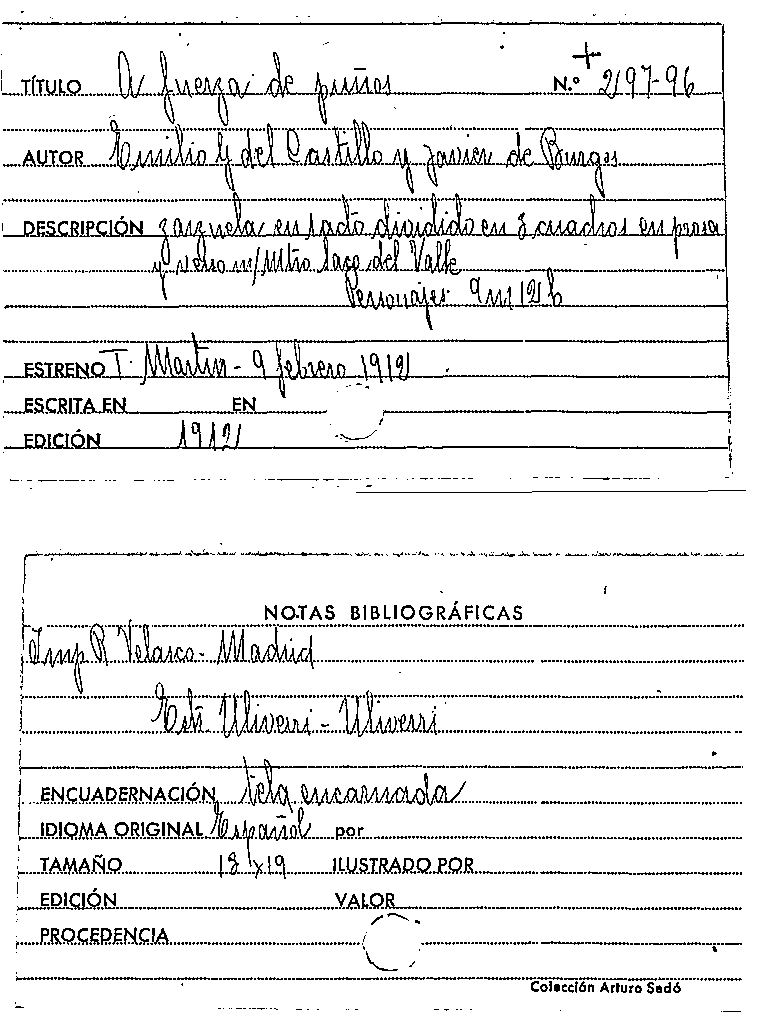 TÍTULO A fuerza de puños N.º + 2197-96
AUTOR Emilio G del Castillo y Javier de Burgos
DESCRIPCIÓN zarzuela en 1 acto dividido en 3 cuadros en prosa
y verso m/ Mtro Saco del Valle
Personajes 9 m 12 h
ESTRENO T. Martin - 9 febrero 1912
ESCRITA EN EN
EDICIÓN 1912
NOTAS BIBLIOGRÁFICAS
Imp R Velasco - Madrid
Uliverri - Uliverri
ENCUADERNACIÓN tela encarnada
IDIOMA ORIGINAL Español por
TAMAÑO 18 x 19 ILUSTRADO POR
EDICIÓN VALOR
PROCEDENCIA
Colección Arturo Sedó